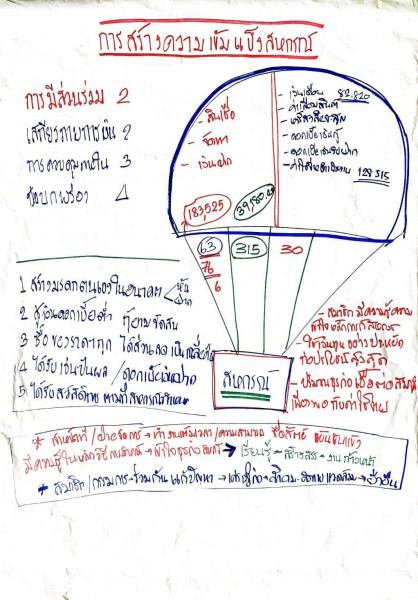 การสร้างความเข้มแข็งสหกรณ์
การมีส่วนร่วม 2
เสถียรภาพการเงิน 2
การควบคุมภายใน 3
ข้อบกพร่อง 4
- สินเชื่อ
- จัดหา
- เงินฝาก
183,525
39,180.
- เงินเดือน 82,820
- ค่าเสื่อมสินค้า
- ดอกเบี้ยเงินกู้
- ดอกเบี้ยเงินฝาก
129,515
63
76
6
315
30
สหกรณ์
1 สร้างมรดกตนเองในอนาคต หุ้น ฝาก
2 กู้เงินดอกเบี้ยต่ำ
3 ซื้อของราคาถูก ได้ส่วนลด
4 ได้รับเงินปันผล /ดอกเบี้ยเงินฝาก
5 ได้รับสวัสดิการ ตามที่สหกรณ์กำหนด
- สมาชิก มีความรู้ความ
เข้าใจ หลักการสหกรณ์
- ใช้เงินทุน อย่างประหยัด
ก่อประโยชน์สูงสุด
- ปริมาณธุรกิจเอื้อต่อสหกรณ์
เพียงพอกับค่าใช้จ่าย
* /ฝ่ายจัดการ → ทำงานเต็มเวลา /ความสามารถ ซื่อสัตย์
มีความรู้ในหลักวิธีการสหกรณ์ → เข้าใจธุรกิจสหกรณ์ → เรียนรู้ - สร้างสรร - งานก้าวหน้า
* สมาชิก /กรรมการ - ร่วมกันแก้ปัญหา → → ยั่งยืน